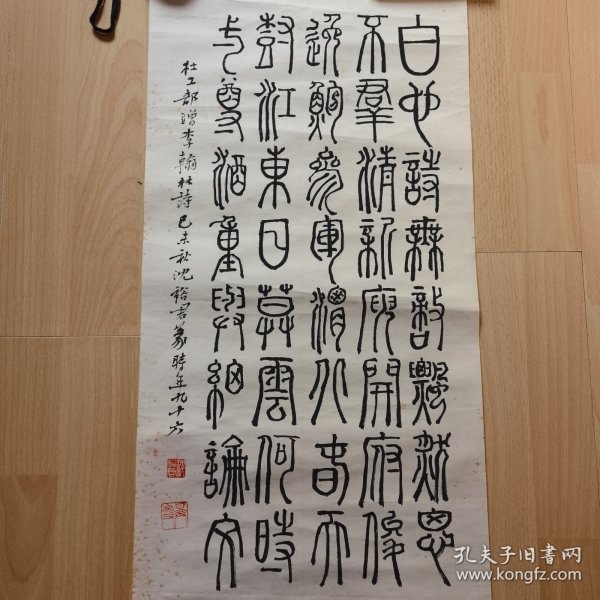 白也詩無敵飄然思
不羣清新庾開府俊
逸鮑參軍渭北春天
尌江東日暮雲何時
弌尊酒重與細論文
杜工部贈李翰林詩己未秋沈裕君篆時年九十六
孔夫子旧书网
www.kongfz.com